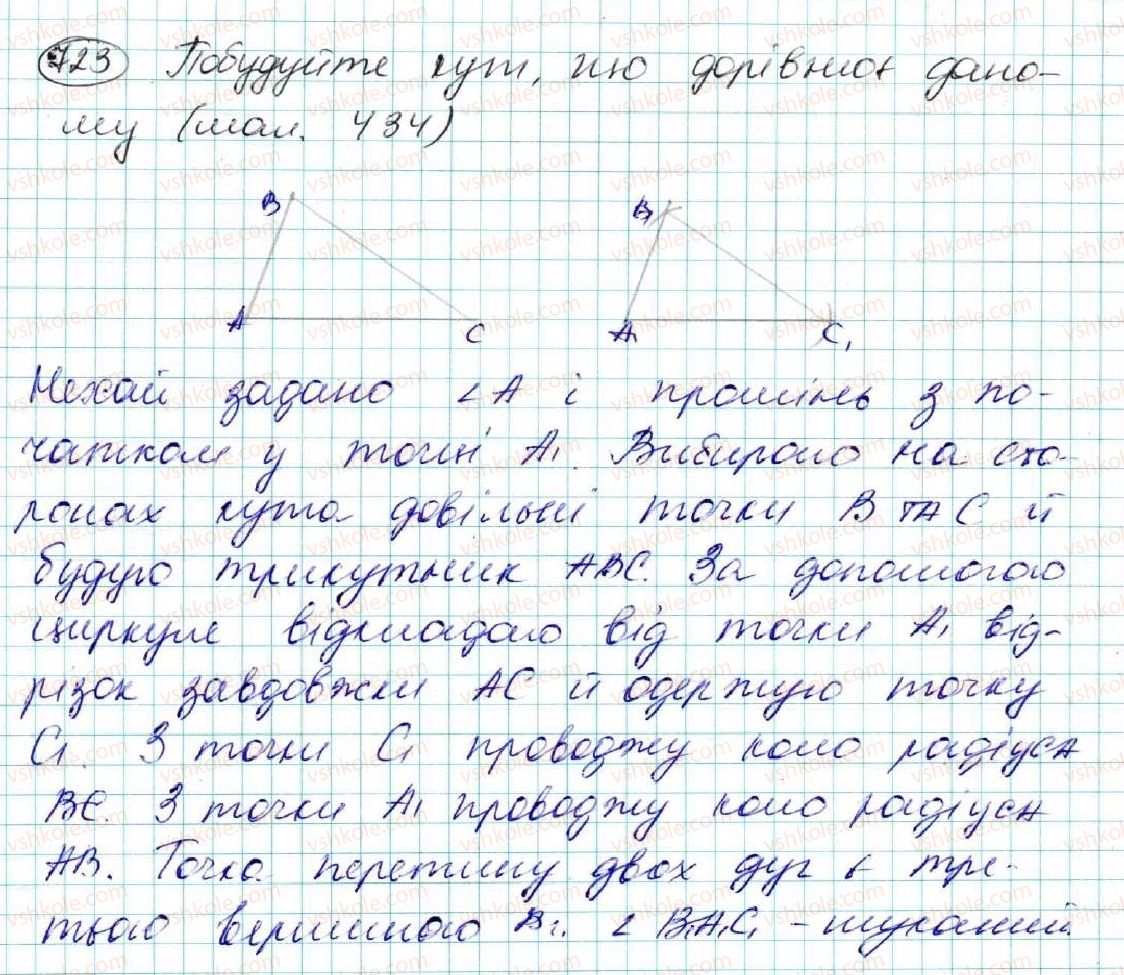 723 Побудуйте кут, що дорівнює дано-
му (мал. 434)
B B₁
A C A₁ C₁
Нехай задано ∠A і промінь з по-
чатком у точці A₁. Вибираю на сто-
ронах кута довільні точки B та C й
будую трикутник ABC. За допомогою
циркуля відкладаю від точки A₁ від-
різок завдовжки AC й одержую точку
C₁. З точки C₁ проводжу коло радіуса
BC. З точки A₁ проводжу коло радіуса
AB. Точка перетину двох дуг є тре-
тьою вершиною B₁. ∠B₁A₁C₁ - шуканий.